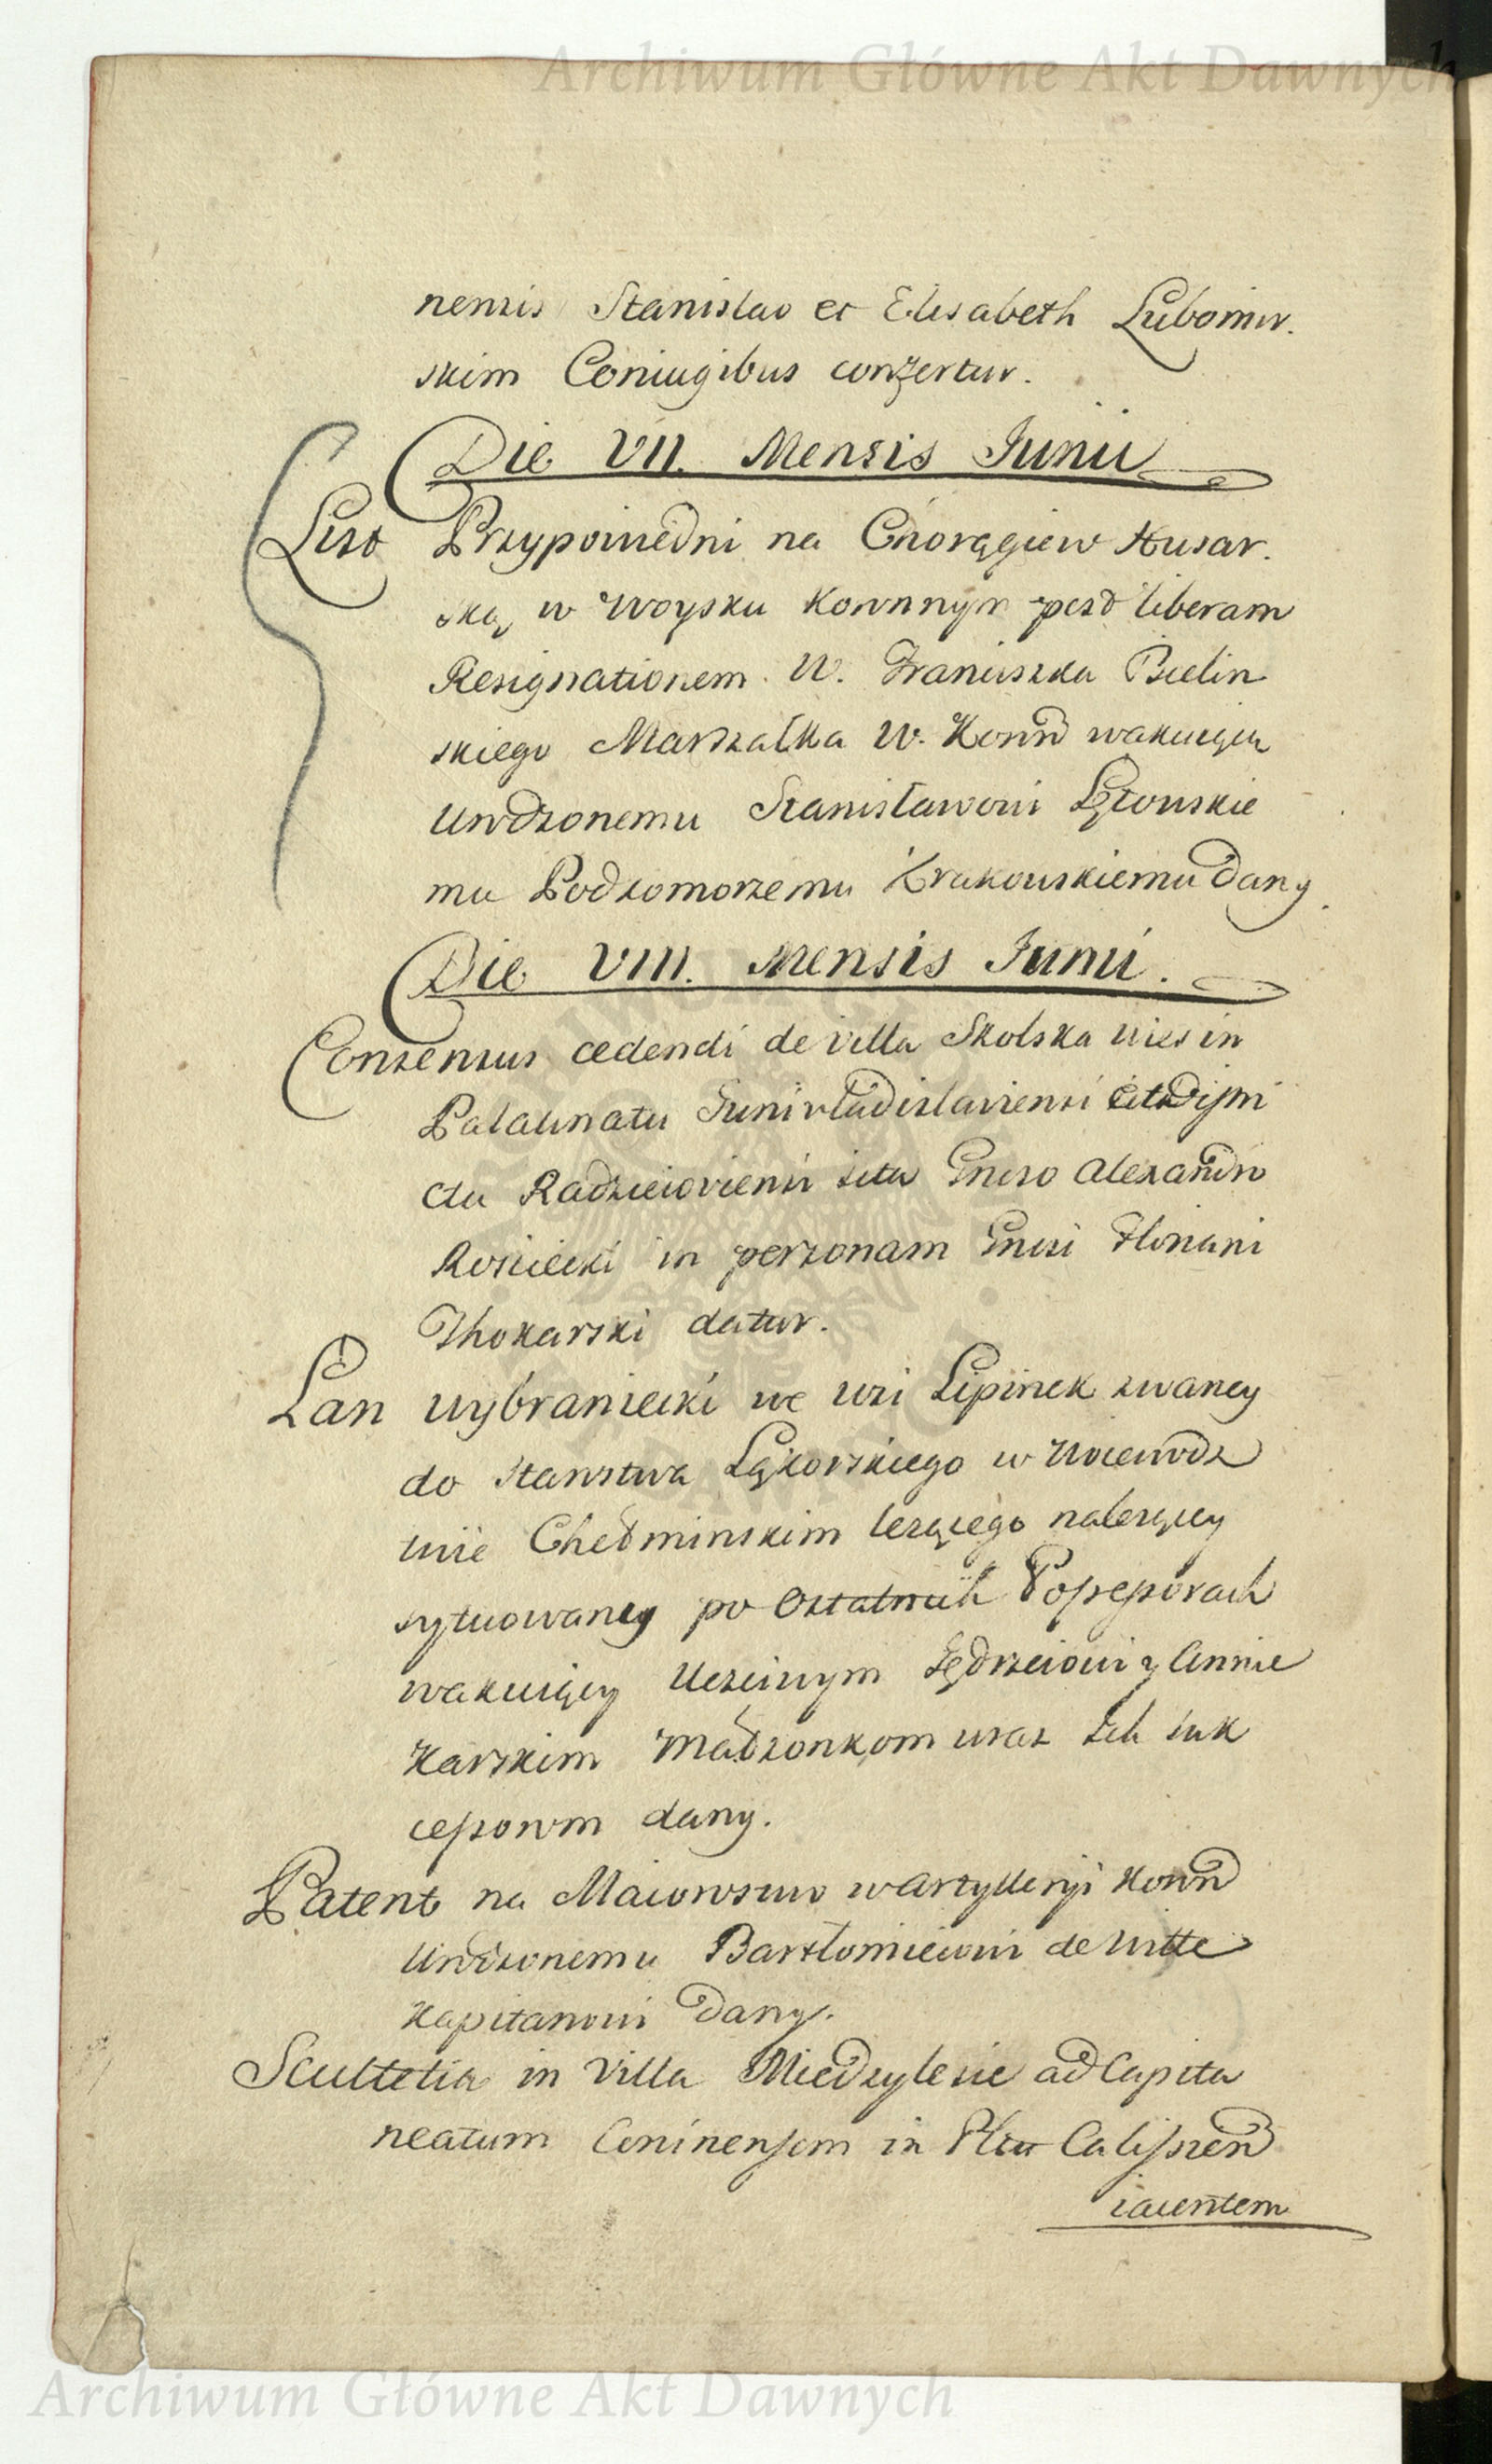 Archiwum Główne Akt Dawnych
nensis Stanislao et Elisabeth Lubomir.
skim Coniugibus confertur.
Die VII. Mensis Junii
List Przypowiedni na Chorągiew Husar.
ską w Woysku Koronnym post liberam
Resignationem W. Franciszka Bielin
skiego Marszałka W. Koron wakuiącą
Urodzonemu Stanisławowi Łętowskie
mu Podkomorzemu Krakowskiemu dany.
Die VIII. Mensis Junii.
Consensus cedendi de villa Skolska wies in
Palatinatu Junivladislaviensi et Distri
ctu Radzieioviensi sita Gneso Alexandro
Rosciecki in personam Gnesi Floriani
Thokarski datur.
Łan wybraniecki we wsi Lipinek zwaney
do starostwa Łąkorskiego w Woiewodz
twie Chełminskim lezącego nalezący
sytuowaney po Ostatnich Possessorach
wakuiący Uczciwym Jędrzeiowi y Annie
Karskim Małżonkom wraz Ich suk
cessorom dany.
Patent na Maiorowstwo w Artylleryi Koron
Urodzonemu Bartłomieiowi de Witte
Kapitanowi dany.
Scultetia in Villa Miedzylesie ad Capita
neatum Coninensem in Pltu Calissien
iacentem
Archiwum Główne Akt Dawnych